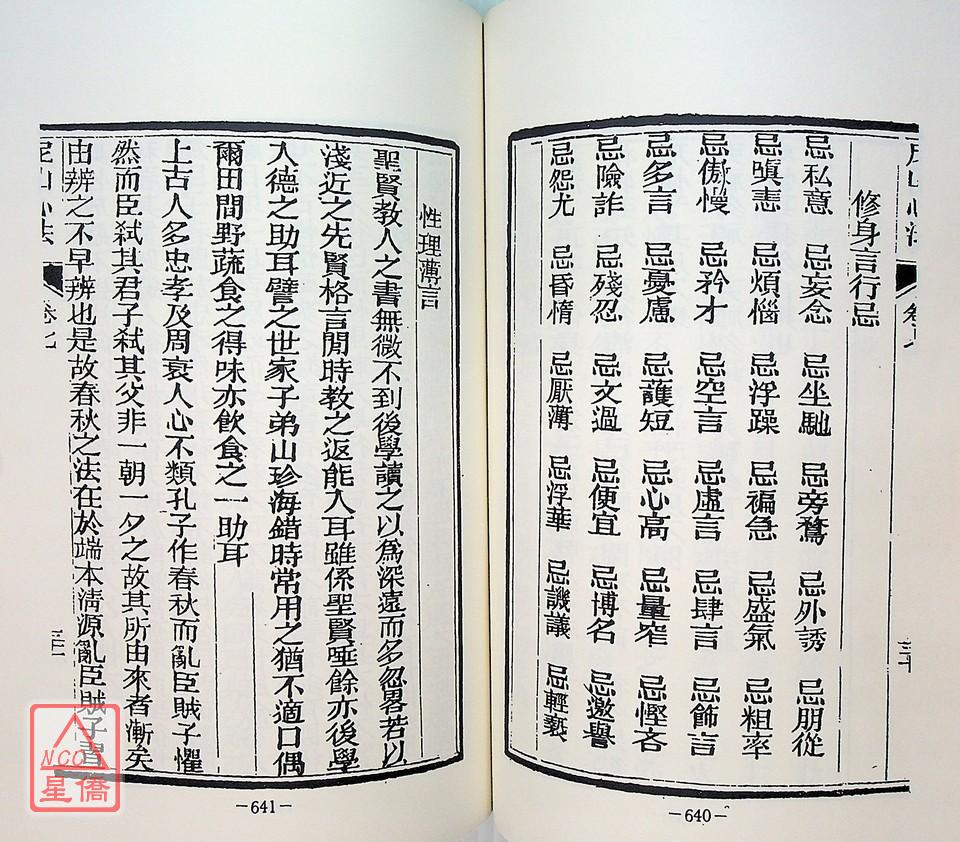 修身言行忌
忌私意 忌妄念 忌坐馳 忌旁騖 忌外誘 忌朋從
忌嗔恚 忌煩惱 忌浮躁 忌褊急 忌盛氣 忌粗率
忌傲慢 忌矜才 忌空言 忌虛言 忌肆言 忌飾言
忌多言 忌憂慮 忌護短 忌心高 忌量窄 忌慳吝
忌險詐 忌殘忍 忌文過 忌便宜 忌博名 忌邀譽
忌怨尤 忌昏惰 忌厭薄 忌浮華 忌譏議 忌輕褻
卷七
三十
—640—
性理薄言
聖賢教人之書無微不到後學讀之以爲深遠而多忽畧若以
淺近之先賢格言閒時教之返能入耳雖係聖賢唾餘亦後學
入德之助耳譬之世家子弟山珍海錯時常用之猶不適口偶
爾田間野蔬食之得味亦飲食之一助耳
上古人多忠孝及周衰人心不類孔子作春秋而亂臣賊子懼
然而臣弒其君子弒其父非一朝一夕之故其所由來者漸矣
由辨之不早辨也是故春秋之法在於端本清源亂臣賊子書
尼山心法
卷七
三十一
—641—
NCC
星僑